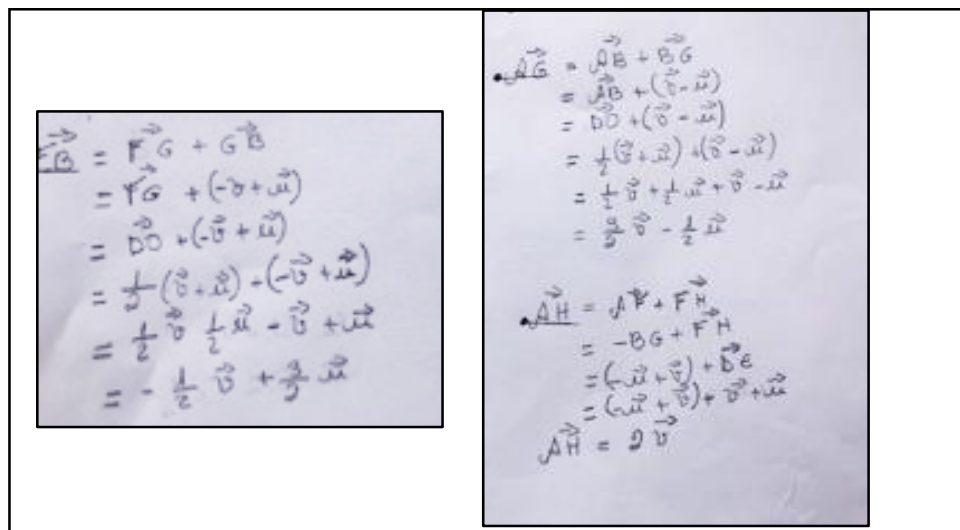 FB = FG + GB
= FG + (-v + u)
= DO + (-v + u)
= 1/2 (v + u) + (-v + u)
= 1/2 v 1/2 u - v + u
= - 1/2 v + 3/2 u
• AG = AB + BG
= AB + (v - u)
= DO + (v - u)
= 1/2 (v + u) + (v - u)
= 1/2 v + 1/2 u + v - u
= 3/2 v - 1/2 u
• AH = AF + FH
= -BG + FH
= (-u + v) + DE
= (-u + v) + v + u
AH = 2 v